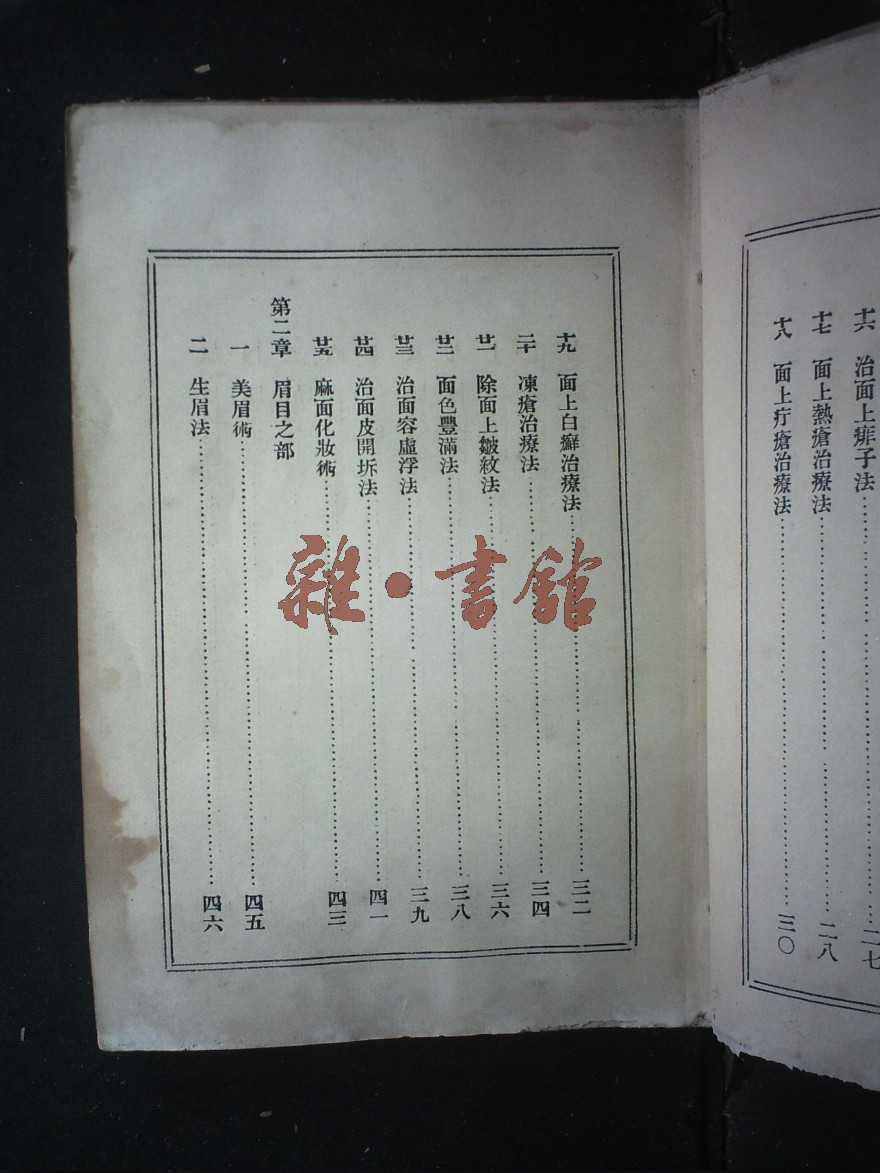 十六 治面上痱子法 二七
十七 面上熱瘡治療法 二八
十八 面上疔瘡治療法 三〇
十九 面上白癬治療法 三二
二十 凍瘡治療法 三四
廿一 除面上皺紋法 三六
廿二 面色豐滿法 三八
廿三 治面容虛浮法 三九
廿四 治面皮開坼法 四一
廿五 麻面化妝術 四三
第二章 眉目之部
一 美眉術 四五
二 生眉法 四六
雜·書館